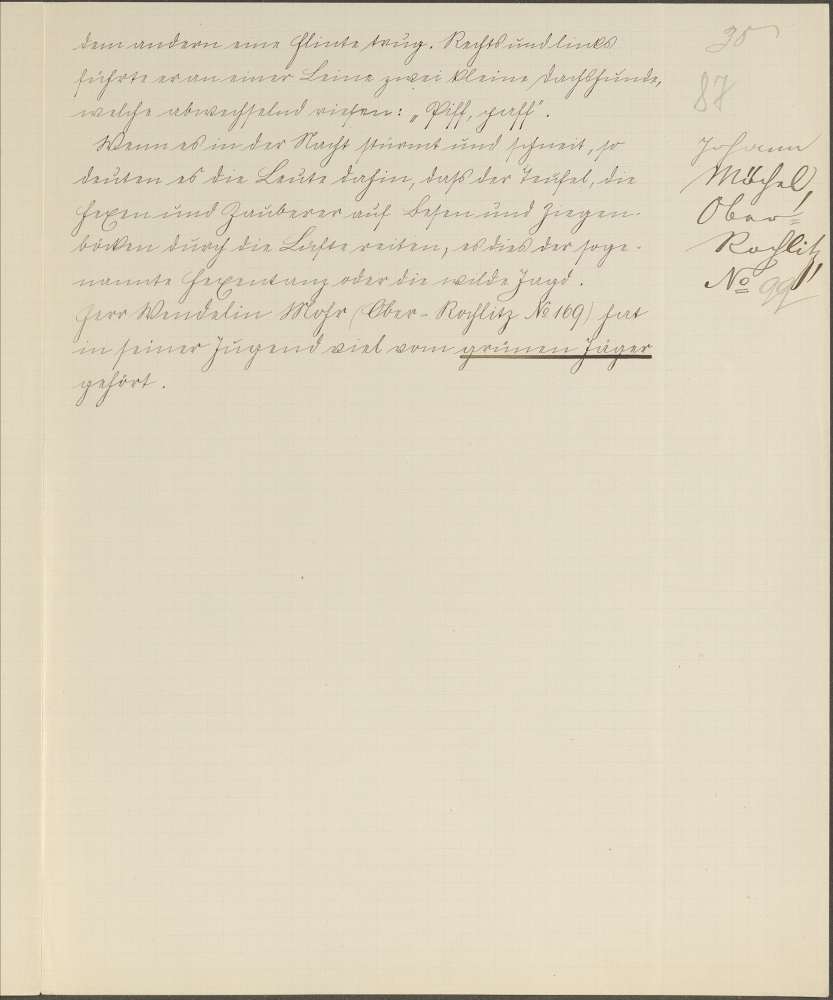 dem andern eine Flinte trug. Rechts und links
führte er an einer Leine zwei kleine Dachshunde,
welche abwechselnd riefen: „Piff, paff".
Wenn es in der Nacht stürmt und schneit, so
deuten es die Leute dahin, daß der Teufel, die
Hexen und Zauberer auf Besen und Ziegen-
böcken durch die Lüfte reiten, es dies der soge-
nannte Hexentanz oder die wilde Jagd.
Herr Wendelin Mohr (Ober-Rochlitz № 169) hat
in seiner Jugend viel vom grünen Jäger
gehört.
87
Johann
Möchel,
Ober-
Rochlitz
№ 99